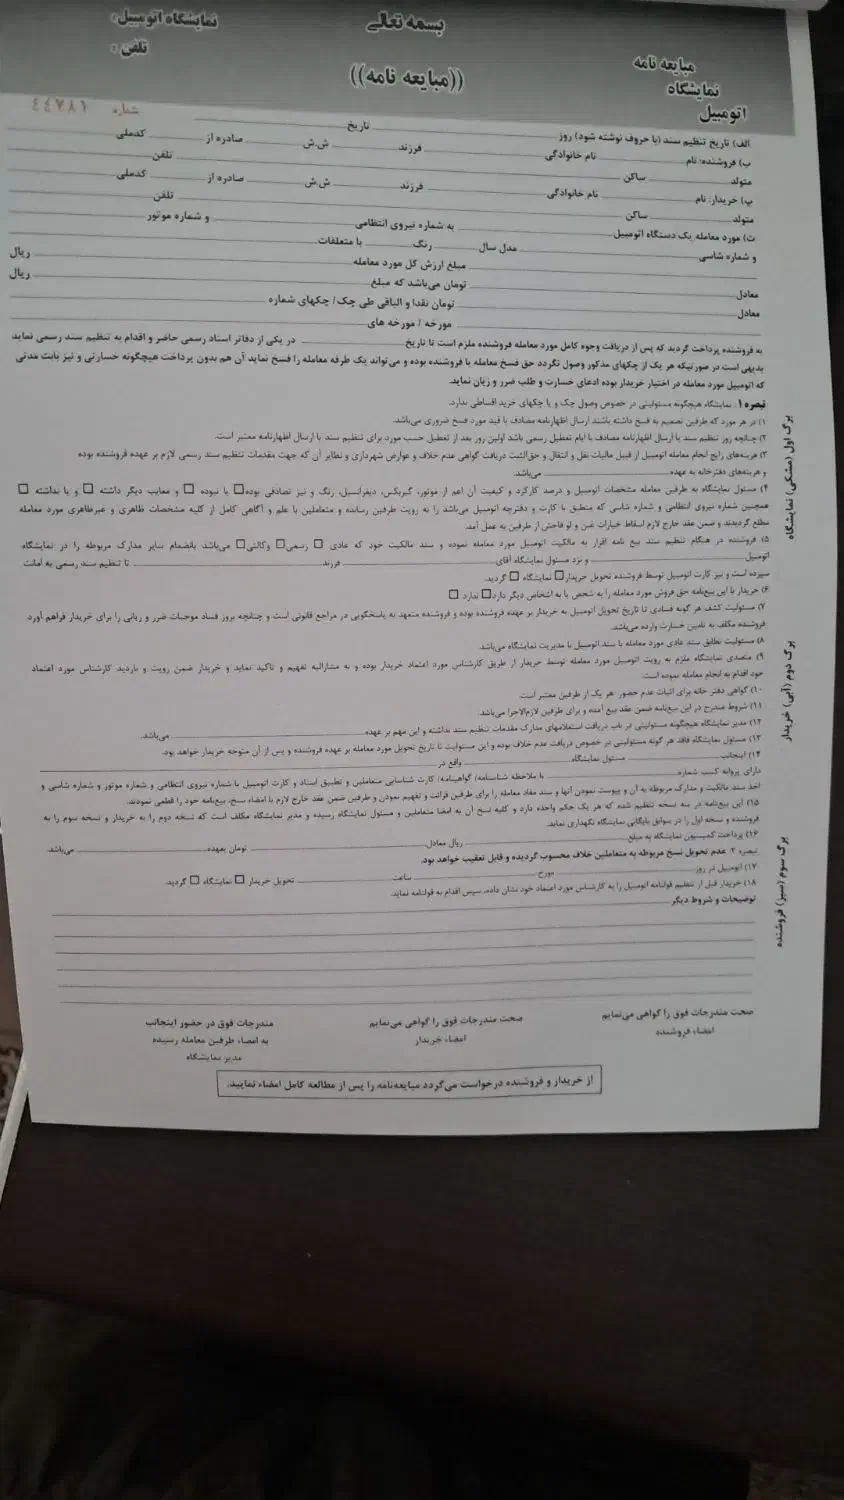 بسمه تعالی
((مبایعه نامه))
نمایشگاه اتومبیل:
تلفن :
مبایعه نامه
نمایشگاه
اتومبیل
شماره ٤٤٧٨١
الف) تاریخ تنظیم سند (با حروف نوشته شود) روز تاریخ
ب) فروشنده: نام نام خانوادگی فرزند ش.ش صادره از کدملی
متولد ساکن تلفن
پ) خریدار: نام نام خانوادگی فرزند ش.ش صادره از کدملی
متولد ساکن تلفن
ت) مورد معامله یک دستگاه اتومبیل به شماره نیروی انتظامی و شماره موتور
و شماره شاسی مدل سال رنگ با متعلقات
مبلغ ارزش کل مورد معامله ریال
معادل تومان می‌باشد که مبلغ ریال
معادل تومان نقدا و الباقی طی چک/ چکهای شماره
مورخه / مورخه های
به فروشنده پرداخت گردید که پس از دریافت وجوه کامل مورد معامله فروشنده ملزم است تا تاریخ در یکی از دفاتر اسناد رسمی حاضر و اقدام به تنظیم سند رسمی نماید
بدیهی است در صورتیکه هر یک از چکهای مذکور وصول نگردد حق فسخ معامله با فروشنده بوده و می‌تواند یک طرفه معامله را فسخ نماید آن هم بدون پرداخت هیچگونه خسارتی و نیز بابت مدتی
که اتومبیل مورد معامله در اختیار خریدار بوده ادعای خسارت و طلب ضرر و زیان نماید.
تبصره ۱: نمایشگاه هیچگونه مسئولیتی در خصوص وصول چک و یا چکهای خرید اقساطی ندارد.
۱) در هر مورد که طرفین تصمیم به فسخ داشته باشند ارسال اظهارنامه مصادف با قید مورد فسخ ضروری می‌باشد.
۲) چنانچه روز تنظیم سند یا ارسال اظهارنامه مصادف با ایام تعطیل رسمی باشد اولین روز بعد از تعطیل حسب مورد برای تنظیم سند یا ارسال اظهارنامه معتبر است.
۳) هزینه‌های رایج انجام معامله اتومبیل از قبیل مالیات نقل و انتقال و حق‌الثبت دریافت گواهی عدم خلاف و عوارض شهرداری و نظایر آن که جهت مقدمات تنظیم سند رسمی لازم بر عهده فروشنده بوده
و هزینه‌های دفترخانه به عهده می‌باشد.
۴) مسئول نمایشگاه به طرفین معامله مشخصات اتومبیل و درصد کارکرد و کیفیت آن اعم از موتور، گیربکس، دیفرانسیل، رنگ و نیز تصادفی بوده □ یا نبوده □ و معایب دیگر داشته □ و یا نداشته □
همچنین شماره نیروی انتظامی و شماره شاسی که منطبق با کارت و دفترچه اتومبیل می‌باشد را به رویت طرفین رسانده و متعاملین با علم و آگاهی کامل از کلیه مشخصات ظاهری و غیرظاهری مورد معامله
مطلع گردیدند و ضمن عقد خارج لازم اسقاط خیارات غبن و لو فاحش از طرفین به عمل آمد.
۵) فروشنده در هنگام تنظیم سند بیع نامه اقرار به مالکیت اتومبیل مورد معامله نموده و سند مالکیت خود که عادی □ رسمی □ وکالتی □ می‌باشد بانضمام سایر مدارک مربوطه را در نمایشگاه
اتومبیل و نزد مسئول نمایشگاه آقای فرزند تا تنظیم سند رسمی به امانت
سپرده است و نیز کارت اتومبیل توسط فروشنده تحویل خریدار □ نمایشگاه □ گردید.
۶) خریدار با این بیع‌نامه حق فروش مورد معامله را به شخص یا به اشخاص دیگر دارد □ ندارد □
۷) مسئولیت کشف هر گونه فسادی تا تاریخ تحویل اتومبیل به خریدار بر عهده فروشنده بوده و فروشنده متعهد به پاسخگویی در مراجع قانونی است و چنانچه بروز فساد موجبات ضرر و زیانی را برای خریدار فراهم آورد
فروشنده مکلف به تامین خسارت وارده می‌باشد.
۸) مسئولیت تطابق سند عادی مورد معامله با سند اتومبیل با مدیریت نمایشگاه می‌باشد.
۹) متصدی نمایشگاه ملزم به رویت اتومبیل مورد معامله توسط خریدار از طریق کارشناس مورد اعتماد خریدار بوده و به مشارالیه تفهیم و تاکید نماید و خریدار ضمن رویت و بازدید کارشناس مورد اعتماد
خود اقدام به انجام معامله نموده است.
۱۰) گواهی دفتر خانه برای اثبات عدم حضور هر یک از طرفین معتبر است.
۱۱) شروط مندرج در این بیع‌نامه ضمن عقد بیع آمده و برای طرفین لازم‌الاجرا می‌باشد.
۱۲) مدیر نمایشگاه هیچگونه مسئولیتی در باب دریافت استعلامهای مدارک مقدمات تنظیم سند نداشته و این مهم بر عهده می‌باشد.
۱۳) مسئول نمایشگاه فاقد هر گونه مسئولیتی در خصوص دریافت عدم خلاف بوده و این مسئولیت تا تاریخ تحویل مورد معامله بر عهده فروشنده و پس از آن متوجه خریدار خواهد بود.
۱۴) اینجانب مسئول نمایشگاه واقع در
دارای پروانه کسب شماره با ملاحظه شناسنامه/ گواهینامه/ کارت شناسایی متعاملین و تطبیق اسناد و کارت اتومبیل با شماره نیروی انتظامی و شماره موتور و شماره شاسی و
اخذ سند مالکیت و مدارک مربوطه به آن و پیوست نمودن آنها و سند مفاد معامله را برای طرفین قرائت و تفهیم نمودن و طرفین ضمن عقد خارج لازم با امضاء سنخ، بیع‌نامه خود را قطعی نمودند.
۱۵) این بیع‌نامه در سه نسخه تنظیم شده که هر یک حکم واحده دارد و کلیه نسخ آن به امضا متعاملین و مسئول نمایشگاه رسیده و مدیر نمایشگاه مکلف است که نسخه دوم را به خریدار و نسخه سوم را به
فروشنده و نسخه اول را در سوابق بایگانی نمایشگاه نگهداری نماید.
۱۶) پرداخت کمیسیون نمایشگاه به مبلغ ریال معادل تومان بعهده می‌باشد.
تبصره ۲: عدم تحویل نسخ مربوطه به متعاملین خلاف محسوب گردیده و قابل تعقیب خواهد بود.
۱۷) اتومبیل در روز مورخ ساعت تحویل خریدار □ نمایشگاه □ گردید.
۱۸) خریدار قبل از تنظیم قولنامه اتومبیل را به کارشناس مورد اعتماد خود نشان داده، سپس اقدام به قولنامه نماید.
توضیحات و شروط دیگر
صحت مندرجات فوق را گواهی می‌نمایم
امضاء فروشنده
صحت مندرجات فوق را گواهی می‌نمایم
امضاء خریدار
مندرجات فوق در حضور اینجانب
به امضاء طرفین معامله رسیده
مدیر نمایشگاه
از خریدار و فروشنده درخواست می‌گردد مبایعه‌نامه را پس از مطالعه کامل امضاء نمایید.
برگ اول (مشکی) نمایشگاه
برگ دوم (آبی) خریدار
برگ سوم (سبز) فروشنده